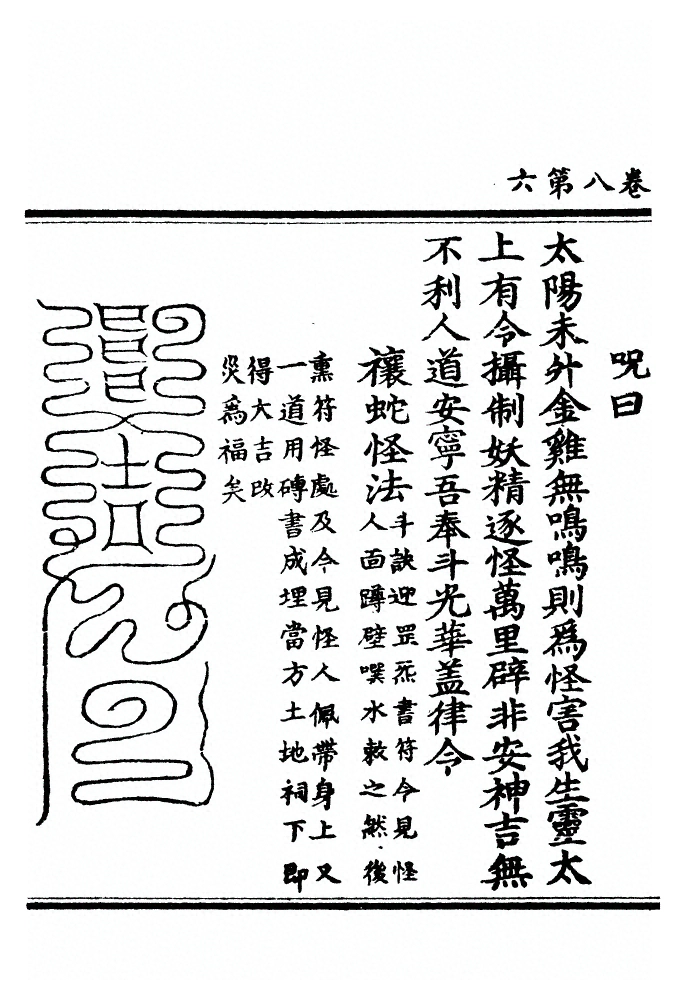 卷八第六
呪曰
太陽未外金雞無鳴鳴則爲怪害我生靈太
上有令攝制妖精逐怪萬里辟非安神吉無
不利人道安寧吾奉斗光華盖律令
禳蛇怪法
斗訣迎罡炁書符令見怪
人面蹲壁噀水敕之然後
熏符怪處及令見怪人佩帶身上又
一道用磚書成埋當方土地祠下即
得大吉改
災爲福矣